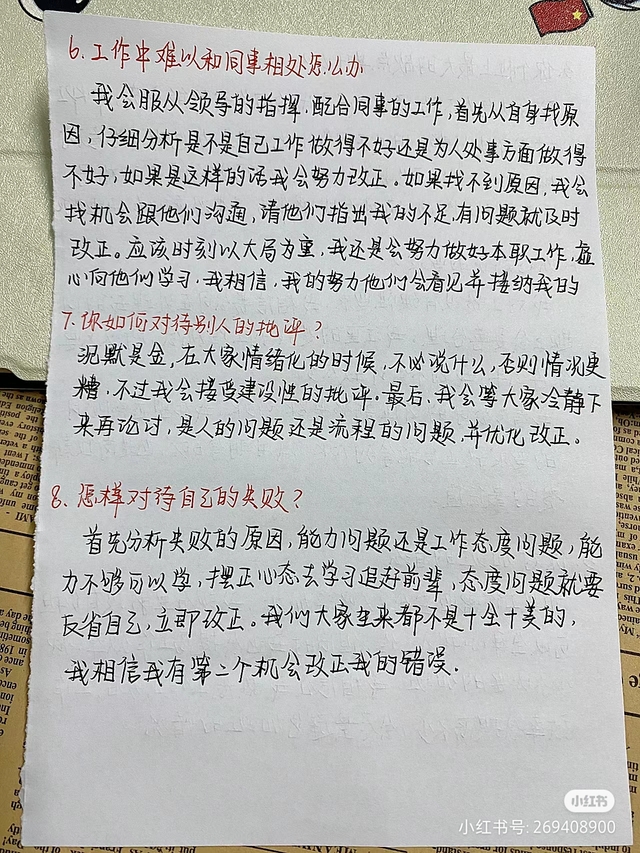 6.工作中难以和同事相处怎么办
我会服从领导的指挥,配合同事的工作,首先从自身找原
因,仔细分析是不是自己工作做得不好还是为人处事方面做得
不好,如果是这样的话我会努力改正。如果找不到原因,我会
找机会跟他们沟通,请他们指出我的不足,有问题就及时
改正。应该时刻以大局为重,我还是会努力做好本职工作,虚
心向他们学习,我相信,我的努力他们会看见并接纳我的
7.你如何对待别人的批评?
沉默是金,在大家情绪化的时候,不必说什么,否则情况更
糟,不过我会接受建设性的批评。最后,我会等大家冷静下
来再论讨,是人的问题还是流程的问题,并优化改正。
8.怎样对待自己的失败?
首先分析失败的原因,能力问题还是工作态度问题,能
力不够可以学,摆正心态去学习追赶前辈,态度问题就要
反省自己,立即改正。我们大家生来都不是十全十美的,
我相信我有第二个机会改正我的错误.
小红书
小红书号:269408900